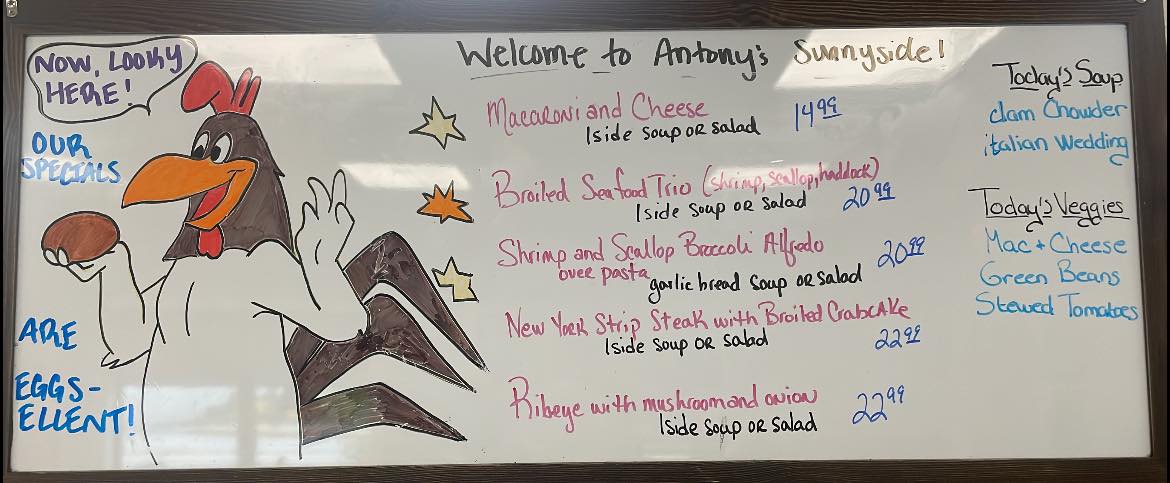 NOW, LOOKY
HERE!
OUR
SPECIALS
ARE
EGGS-
ELLENT!
Welcome to Antony's Sunnyside!
Macaroni and Cheese 14.99
1 side soup or salad
Broiled Seafood Trio (shrimp, scallop, haddock)
1 side soup or salad 20.99
Shrimp and Scallop Broccoli Alfredo 20.99
over pasta garlic bread soup or salad
New York Strip Steak with Broiled Crabcake
1 side soup or salad 22.99
Ribeye with mushroom and onion 22.99
1 side soup or salad
Today's Soup
clam Chowder
italian Wedding
Today's Veggies
Mac + Cheese
Green Beans
Stewed Tomatoes